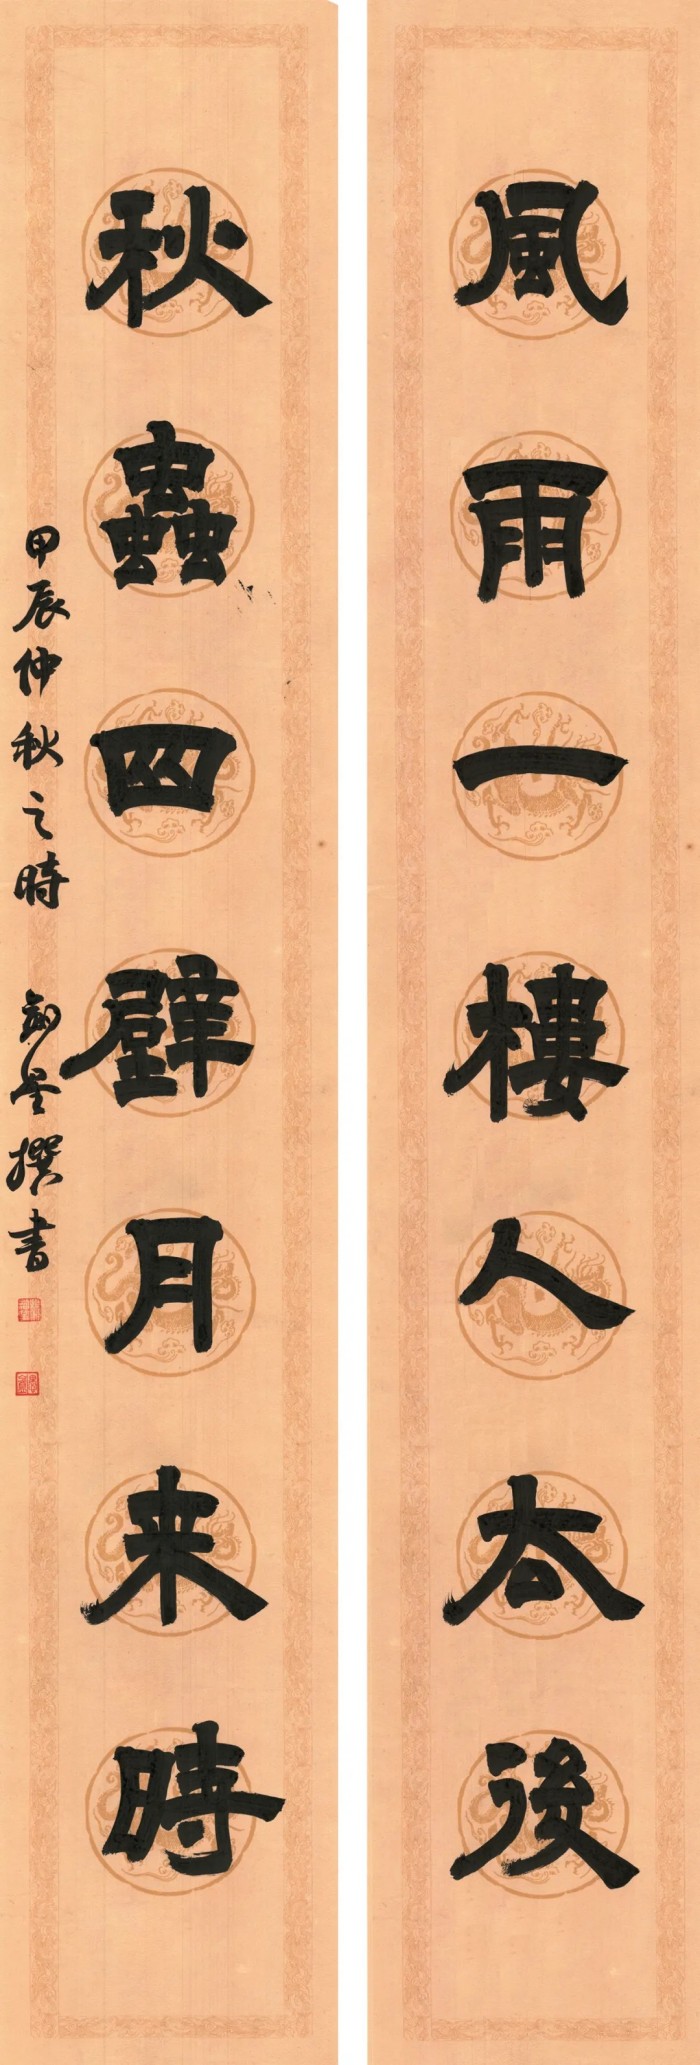 風雨一樓人太後
秋蟲四壁月来時
甲辰仲秋之時 劍星撰書